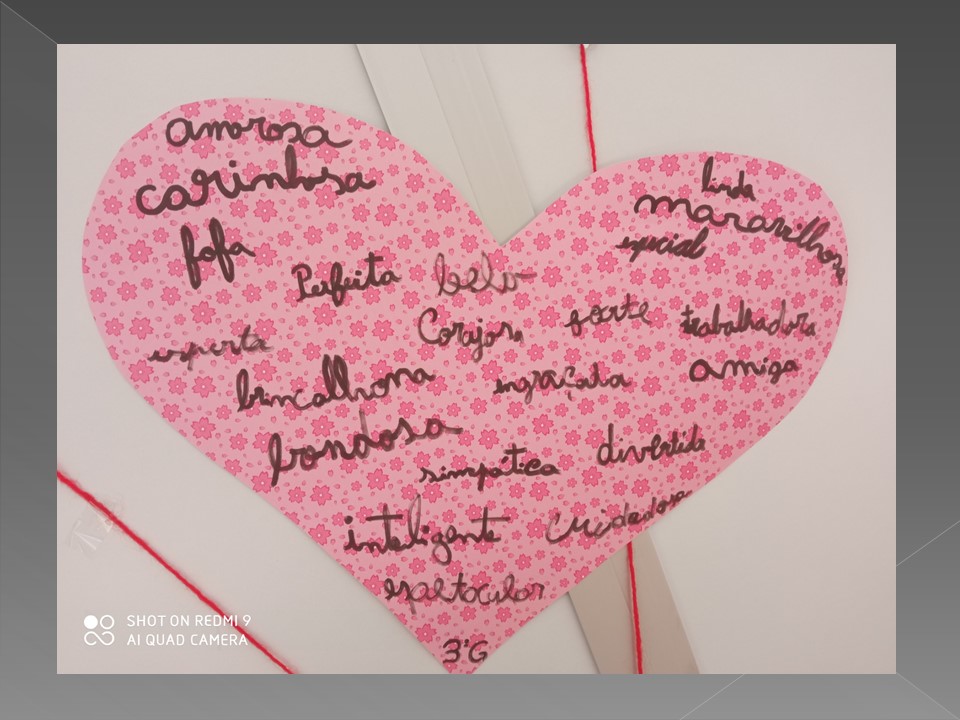 amorosa
carinhosa
fofa
Perfeita
belo
linda
maravilhosa
especial
esperta
Corajosa
forte
trabalhadora
brincalhona
engraçada
amiga
bondosa
simpática
divertida
inteligente
cuidadosa
espetacular
3ºG
SHOT ON REDMI 9
AI QUAD CAMERA